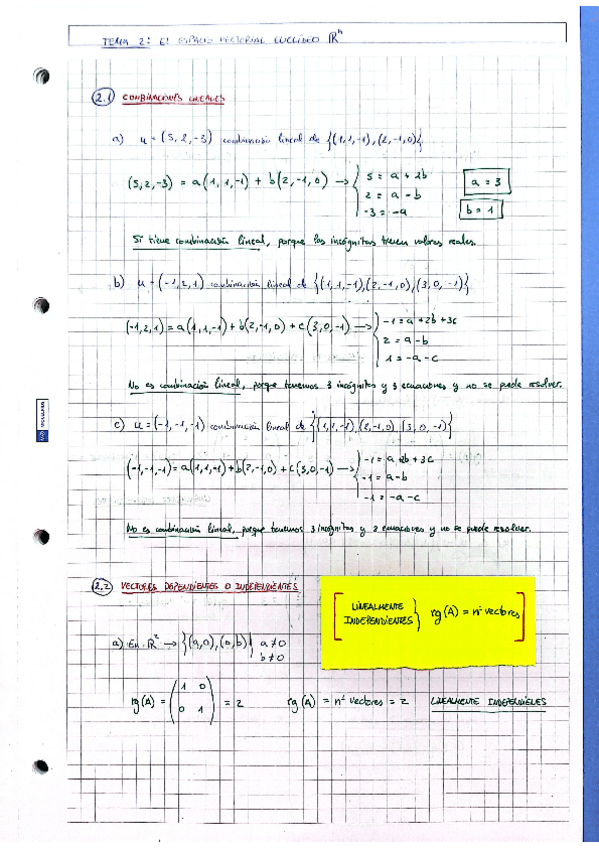 TEMA 2: El ESPACIO VECTORIAL EUCLÍDEO ℝⁿ
2.1 COMBINACIONES LINEALES
a) u = (5, 2, -3) combinación lineal de {(1,1,-1),(2,-1,0)}
(5,2,-3) = a(1,1,-1) + b(2,-1,0) → { 5 = a + 2b
2 = a - b
-3 = -a
a = 3
b = 1
Sí tiene combinación lineal, porque las incógnitas tienen valores reales.
b) u = (-1,2,1) combinación lineal de {(1,1,-1),(2,-1,0),(3,0,-1)}
(-1,2,1) = a(1,1,-1) + b(2,-1,0) + c(3,0,-1) → { -1 = a + 2b + 3c
2 = a - b
1 = -a - c
No es combinación lineal, porque tenemos 3 incógnitas y 3 ecuaciones y no se puede resolver.
c) u = (-1,-1,-1) combinación lineal de {(1,1,-1),(2,-1,0),(3,0,-1)}
(-1,-1,-1) = a(1,1,-1) + b(2,-1,0) + c(3,0,-1) → { -1 = a + 2b + 3c
-1 = a - b
-1 = -a - c
No es combinación lineal, porque tenemos 3 incógnitas y 2 ecuaciones y no se puede resolver.
2.2 VECTORES DEPENDIENTES O INDEPENDIENTES
[ LINEALMENTE INDEPENDIENTES } rg(A) = nº vectores ]
a) En ℝ² → {(a,0),(0,b)| a ≠ 0
b ≠ 0
rg(A) = ( 1 0
0 1 ) = 2
rg(A) = nº vectores = 2
LINEALMENTE INDEPENDIENTES